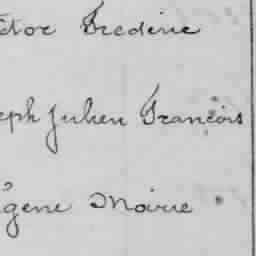 ctor Frederic
eph Julien François
gène Marie